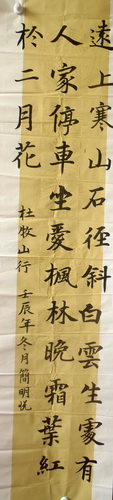 遠上寒山石徑斜白雲生處有
人家停車坐愛楓林晚霜葉紅
於二月花
杜牧山行 壬辰年冬月簡明悦